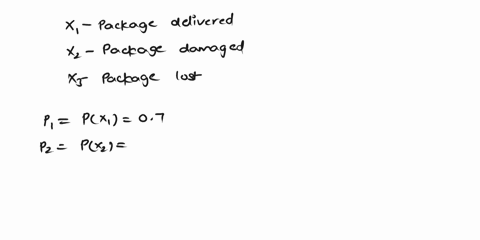 X₁ - Package delivered
X₂ - Package damaged
X₃ Package lost
P₁ = P(X₁) = 0.7
P₂ = P(X₂) =